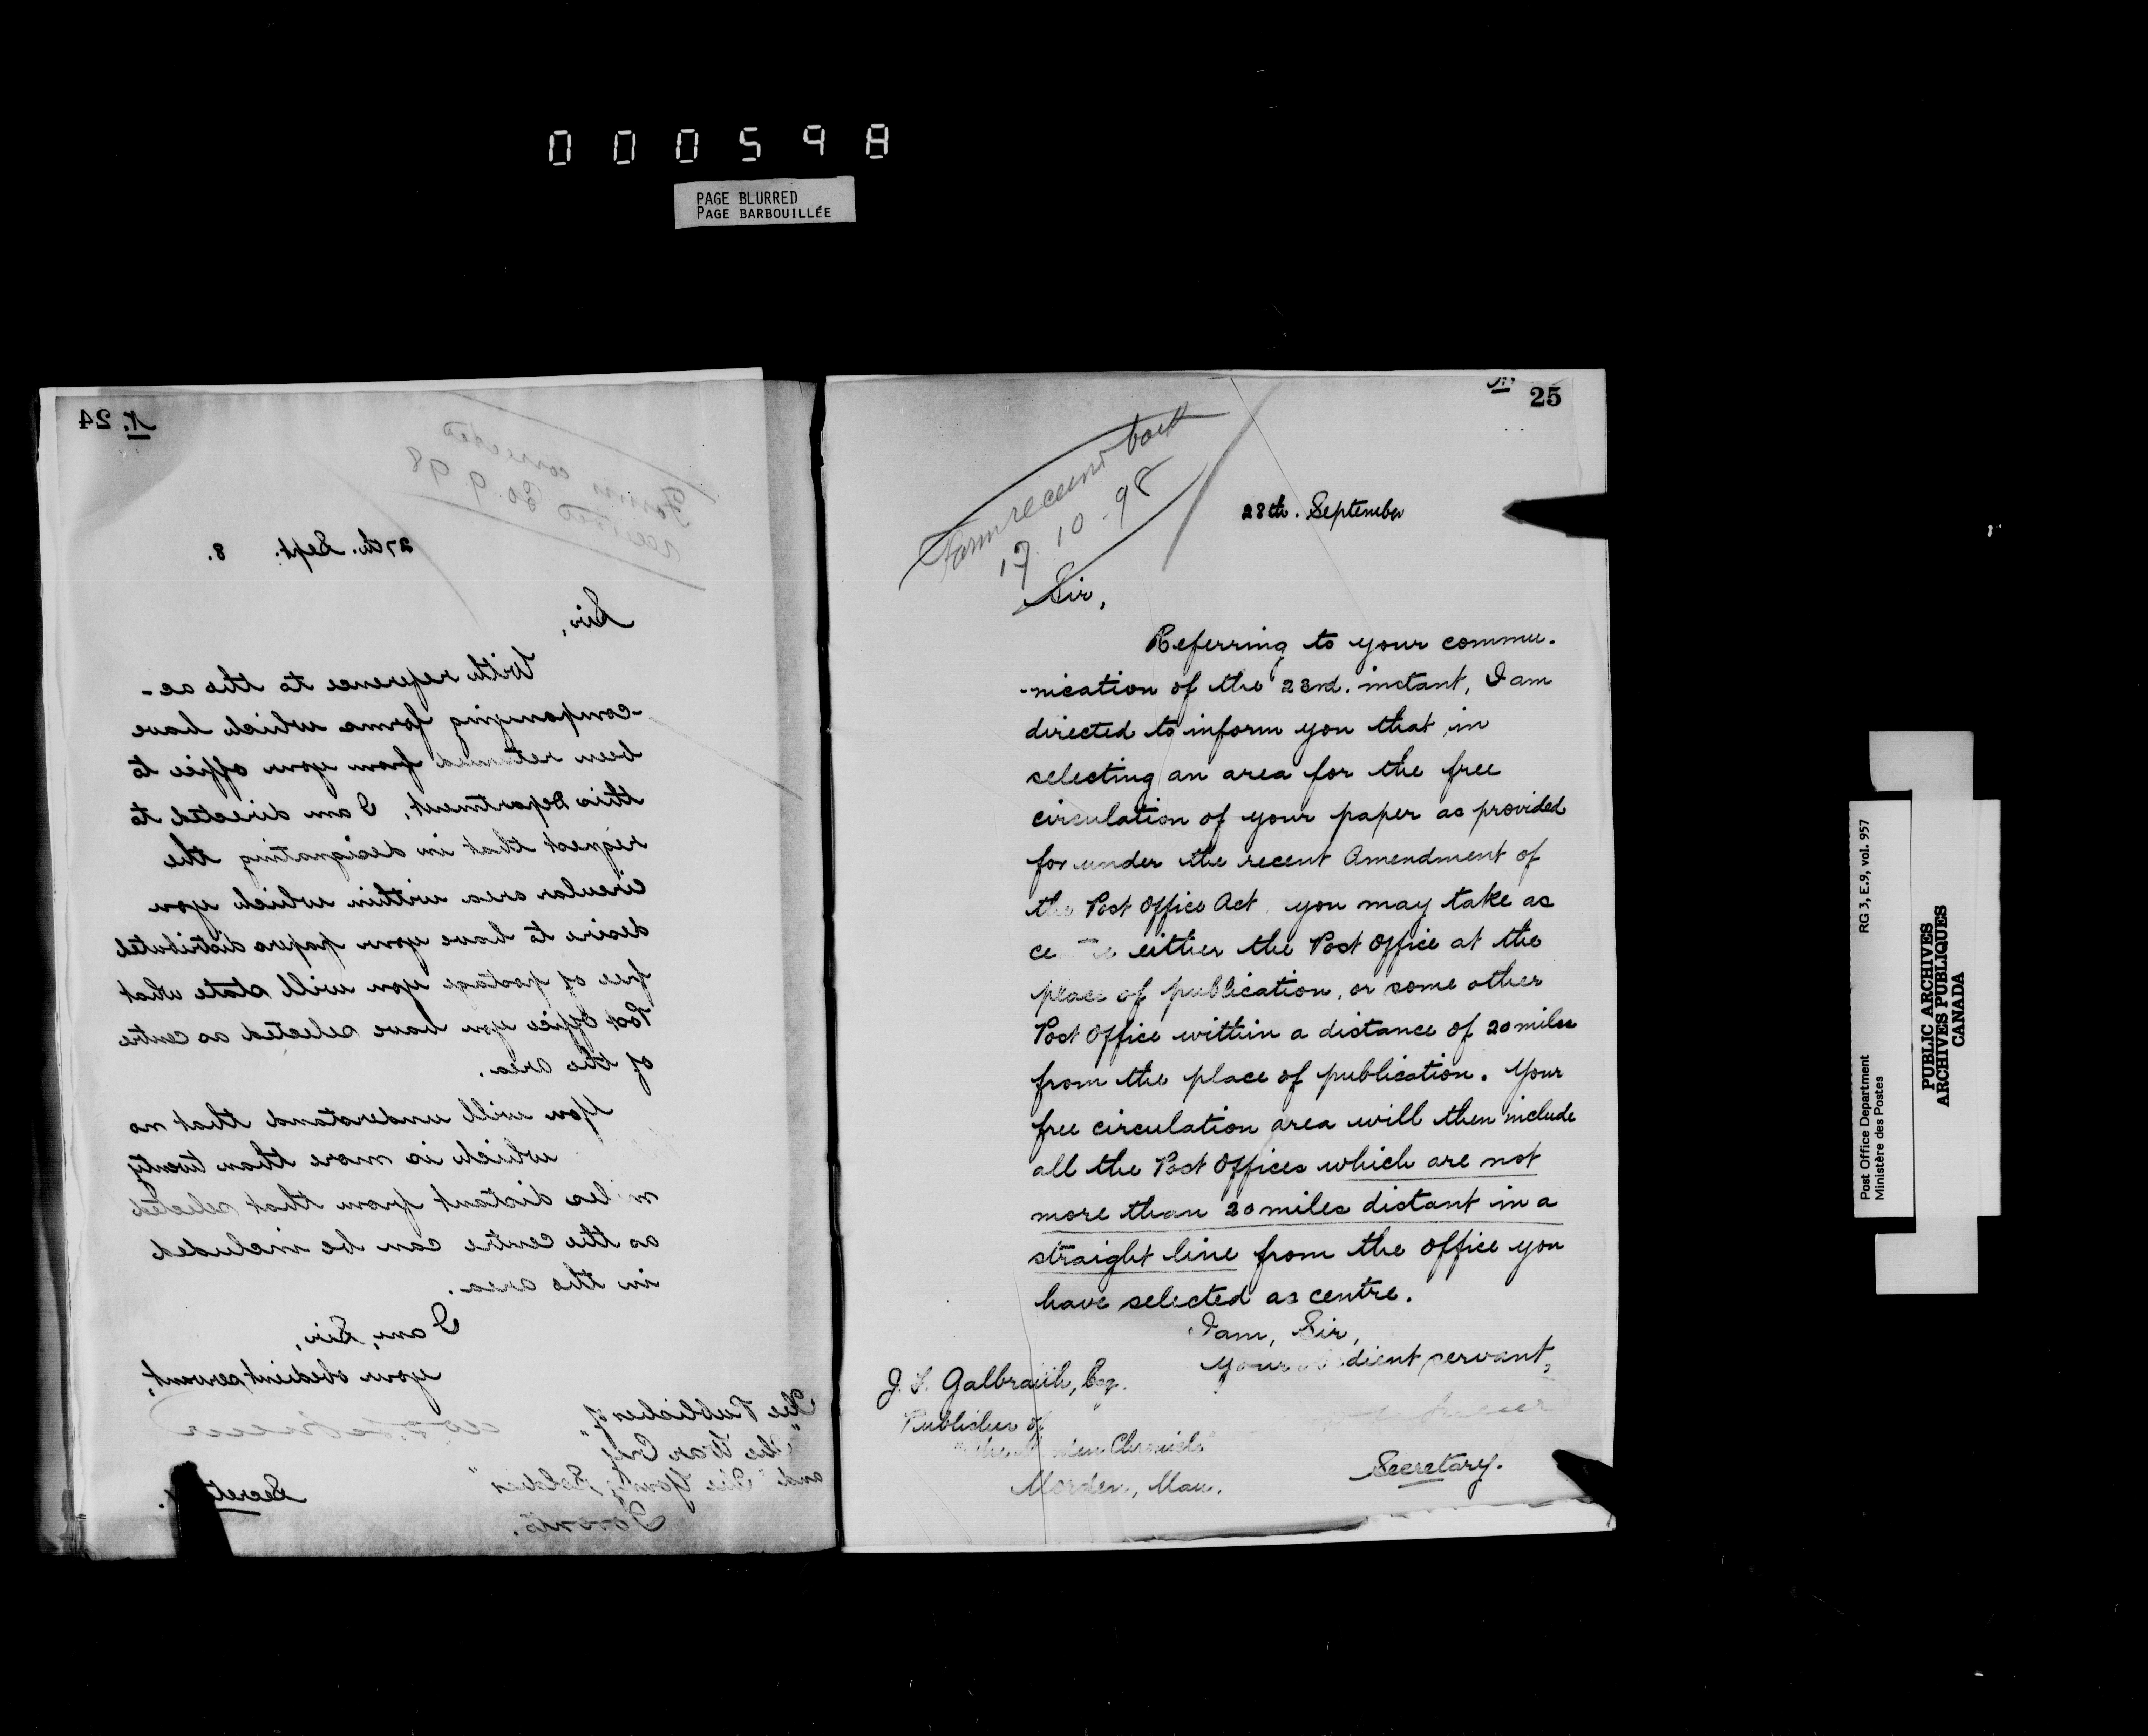 000598
PAGE BLURRED
PAGE BARBOUILLÉE
N. 24
Form corrected
received 30 9 98
27th. Sept. 8.
Sir,
With reference to the ac-
-companying forms which have
been returned from your office to
this Department, I am directed to
request that in designating the
circular area within which you
desire to have your papers distributed
free of postage you will state what
Post Office you have selected as centre
of the area.
You will understand that no
which is more than twenty
miles distant from that selected
as the centre can be included
in the area.
I am, Sir,
your obedient servant,
Secretary.
The Publisher of
"The War Cry"
and "The Young Soldier"
Toronto.
N. 25
Form received back
17 10 - 98
28th. September
Sir,
Referring to your commu-
-nication of the 23rd. instant, I am
directed to inform you that in
selecting an area for the free
circulation of your paper as provided
for under the recent Amendment of
the Post Office Act you may take as
centre either the Post Office at the
place of publication, or some other
Post Office within a distance of 20 miles
from the place of publication. Your
free circulation area will then include
all the Post Offices which are not
more than 20 miles distant in a
straight line from the office you
have selected as centre.
I am, Sir,
your obedient servant,
Secretary.
J. S. Galbraith, Esq.
Publisher of
"The Morden Chronicle"
Morden, Man.
Post Office Department
Ministère des Postes
RG 3, E.9, vol. 957
PUBLIC ARCHIVES
ARCHIVES PUBLIQUES
CANADA